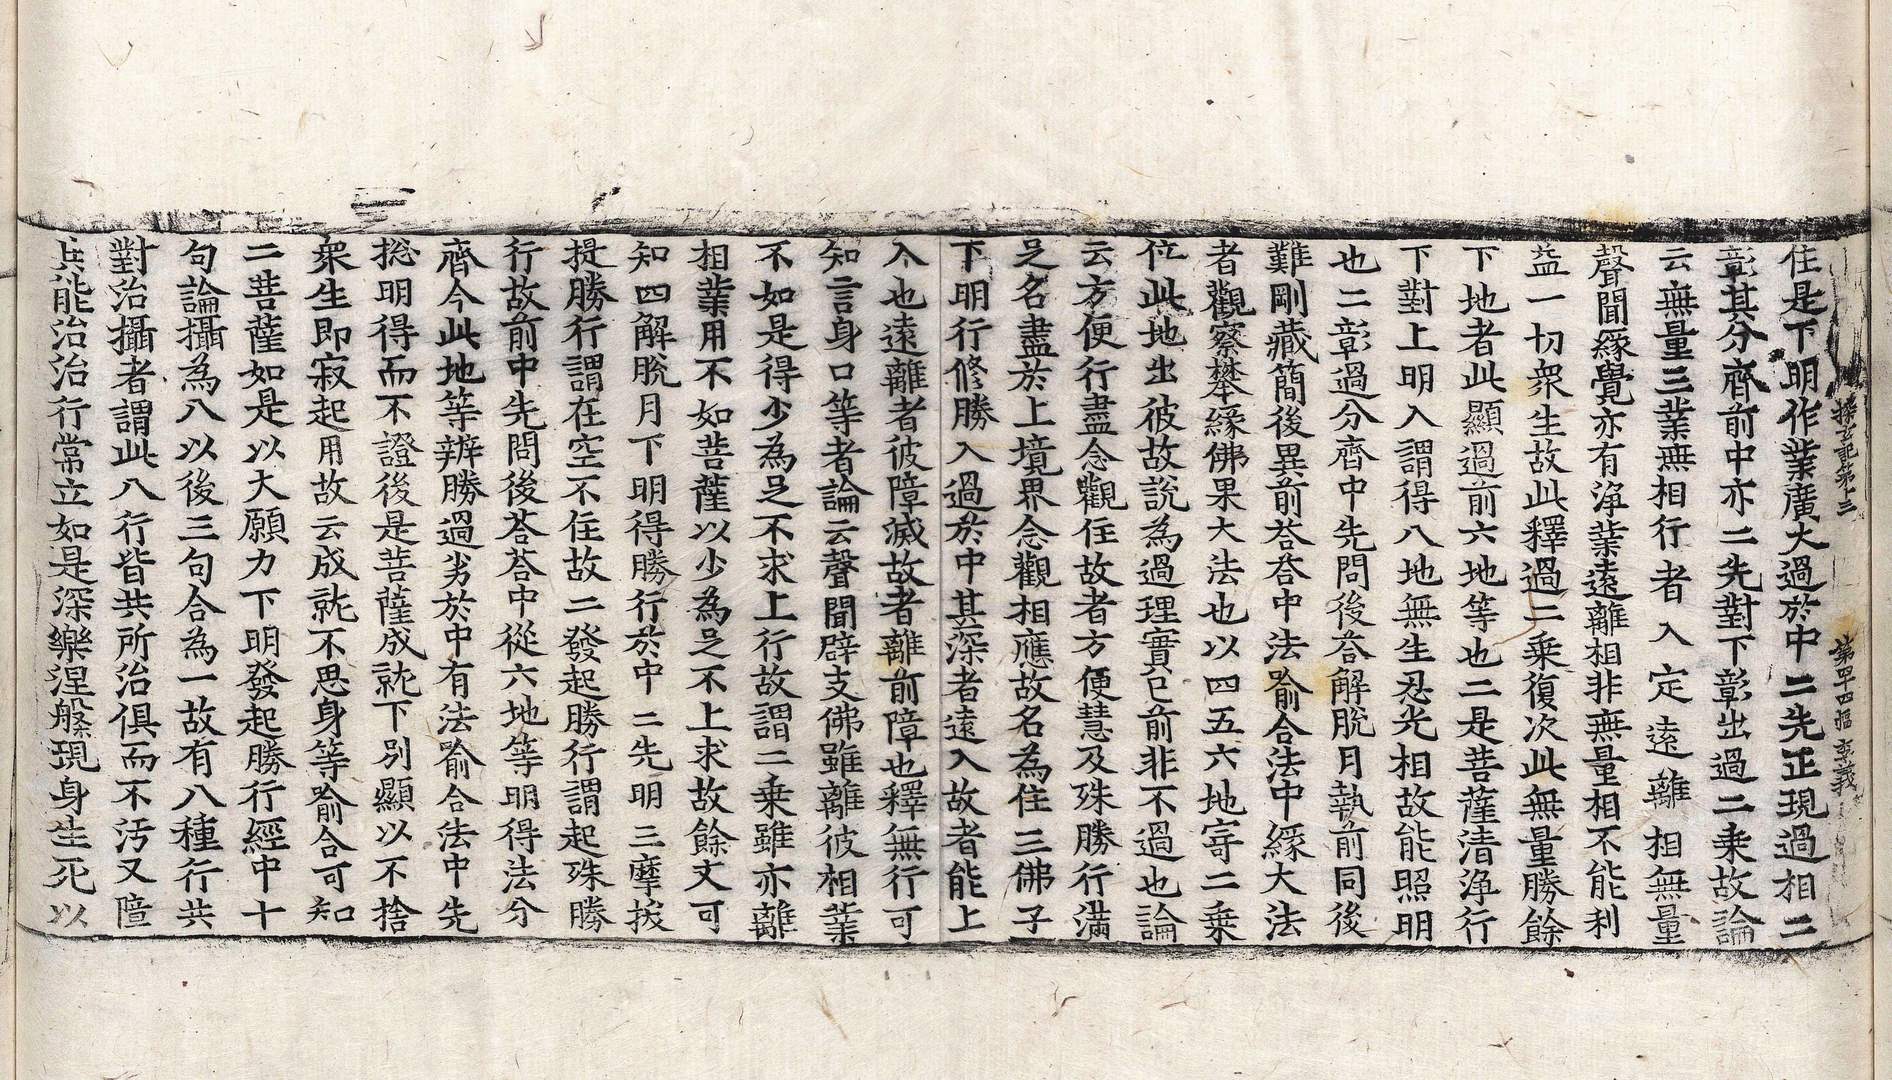 探玄記第十三　第四十四幅　李義
住是下明作業廣大過於中二先正現過相二
彰其分齊前中亦二先對下彰出過二乗故論
云無量三業無相行者入定遠離相無量
聲聞緣覺亦有淨業遠離相非無量相不能利
益一切衆生故此釋過二乗復次此無量勝餘
下地者此顯過前六地等也二是菩薩清淨行
下對上明入謂得八地無生忍光相故能照明
也二彰過分齊中先問後荅解脫月執前同後
難剛藏簡後異前荅荅中法喻合法中緣大法
者觀察攀緣佛果大法也以四五六地寄二乗
位此地出彼故說為過理實已前非不過也論
云方便行盡念觀住故者方便慧及殊勝行滿
足名盡於上境界念觀相應故名為住三佛子
下明行修勝入過於中其深者遠入故者能上
入也遠離者彼障滅故者離前障也釋無行可
知言身口等者論云聲聞辟支佛雖離彼相業
不如是得少為足不求上行故謂二乗雖亦離
相業用不如菩薩以少為足不上求故餘文可
知四解脫月下明得勝行於中二先明三摩拔
提勝行謂在空不住故二發起勝行謂起殊勝
行故前中先問後荅荅中從六地等明得法分
齊今此地等辨勝過劣於中有法喻合法中先
捴明得而不證後是菩薩成就下別顯以不捨
衆生即寂起用故云成就不思身等喻合可知
二菩薩如是以大願力下明發起勝行經中十
句論攝為八以後三句合為一故有八種行共
對治攝者謂此八行皆共所治俱而不汚又障
共能治治行常立如是深樂涅槃現身生死以